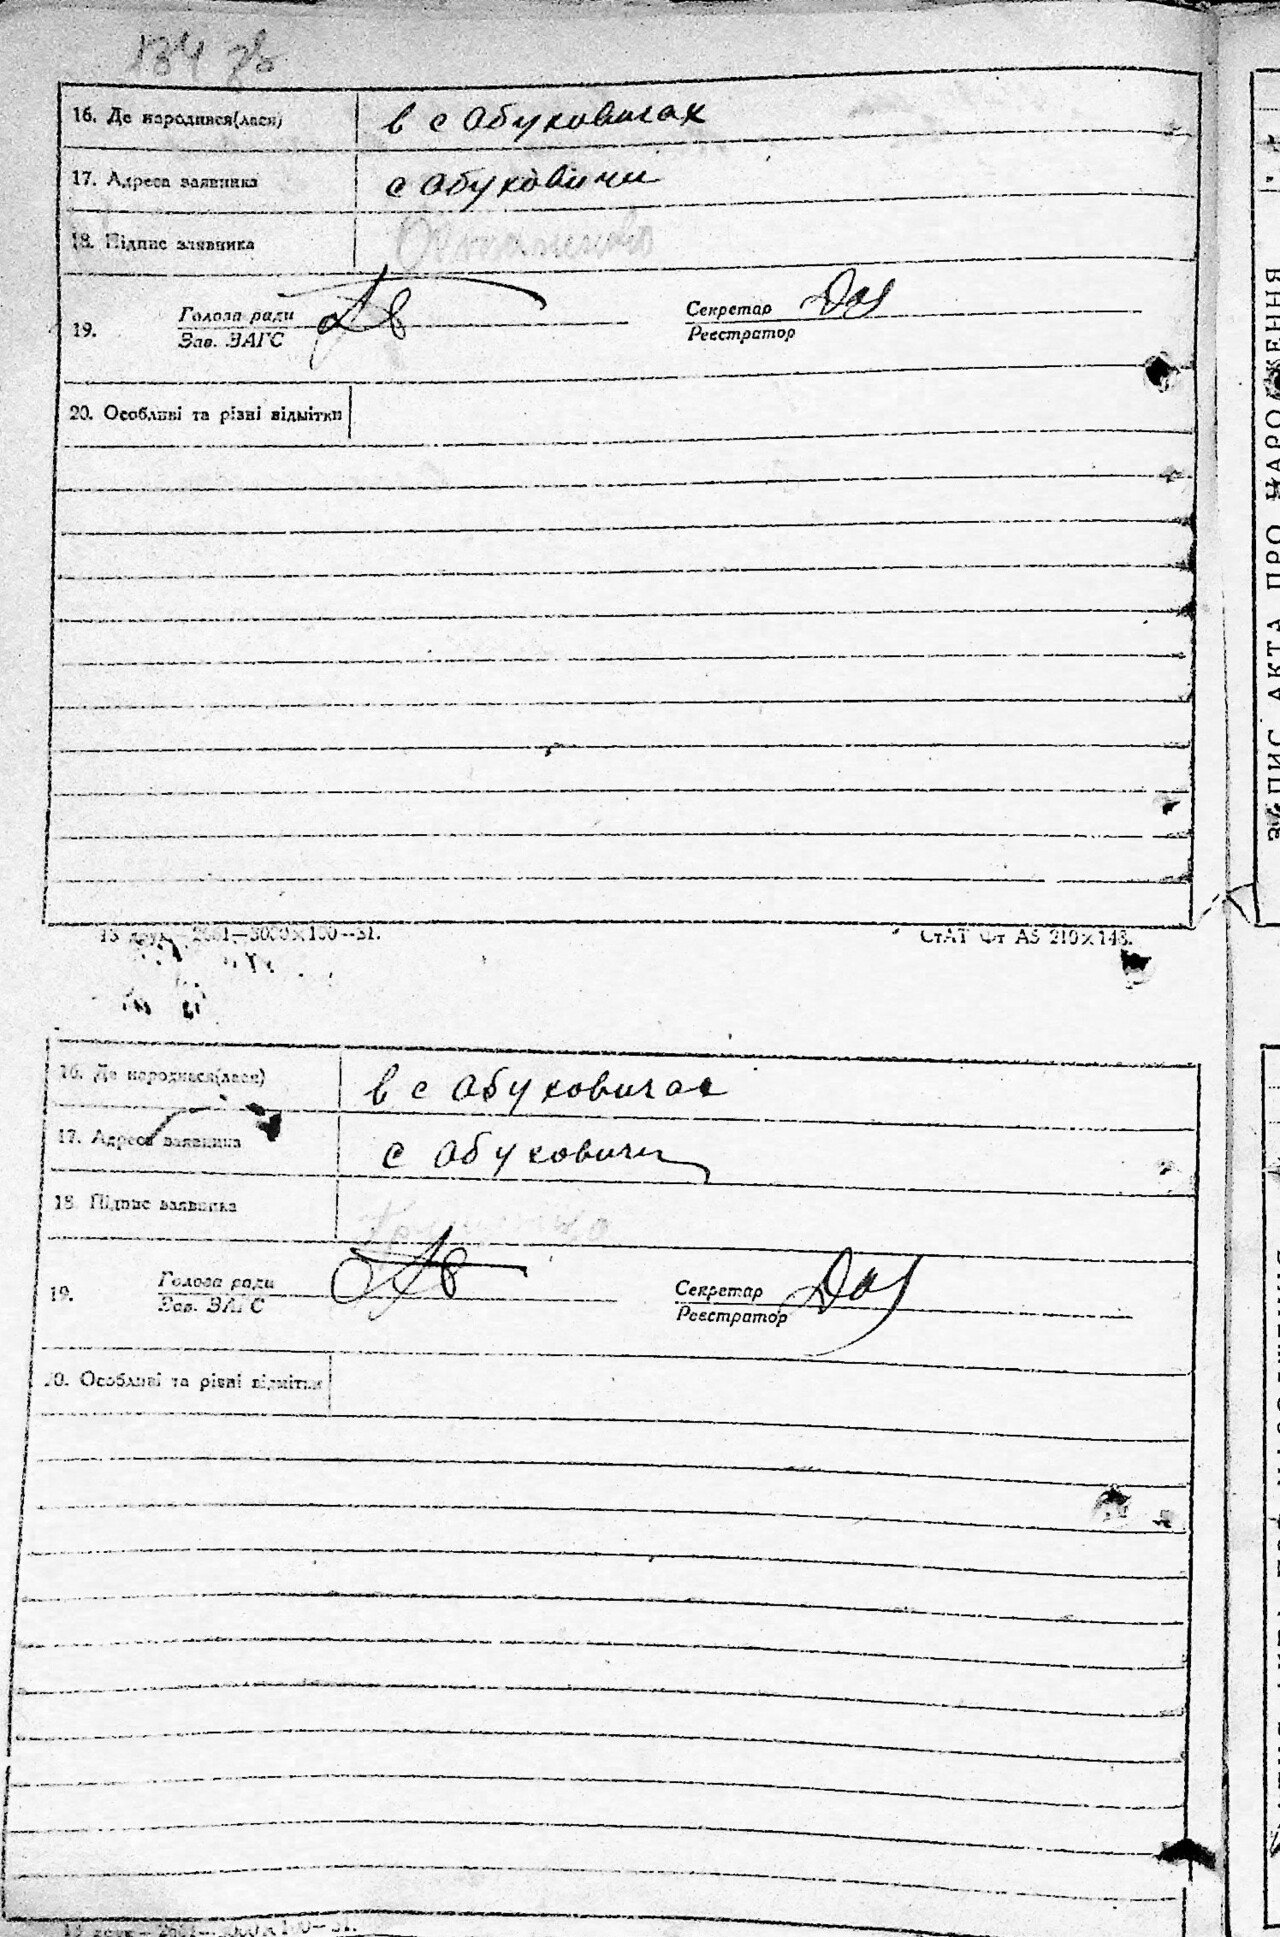 134 зв
16. Де народився(лася) в с Обуховичах
17. Адреса заявника с Обуховичи
18. Підпис заявника
19. Голова ради Секретар
Зав. ЗАГС Реєстратор
20. Особливі та різні відмітки
13 друк—2661—3000×100—31. СтАТ Фт А5 210×148.
16. Де народився(лася) в с Обуховичах
17. Адреса заявника с Обуховичи
18. Підпис заявника
19. Голова ради Секретар
Зав. ЗАГС Реєстратор
20. Особливі та різні відмітки
13 друк—2661—3000×100—31.
ЗАПИС АКТА ПРО НАРОДЖЕННЯ